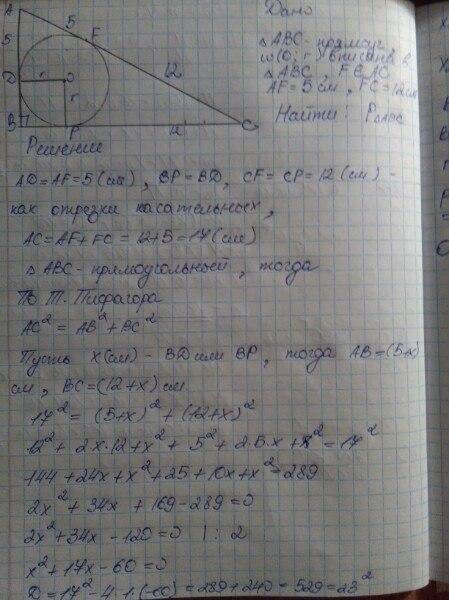 A
5
5
F
12
D
r
O
r
B
P
12
C
Дано
△ABC - прямоуг.
ω(O; r) вписана в
△ABC, F∈AC
AF = 5 см, FC = 12 см
Найти: P△ABC
Решение
AD = AF = 5 (см), BP = BD, CF = CP = 12 (см) -
как отрезки касательных,
AC = AF + FC = 12 + 5 = 17 (см)
△ABC - прямоугольный, тогда
По т. Пифагора
AC² = AB² + BC²
Пусть x (см) - BD или BP, тогда AB = (5+x)
см, BC = (12+x) см
17² = (5+x)² + (12+x)²
12² + 2x·12 + x² + 5² + 2·5·x + x² = 17²
144 + 24x + x² + 25 + 10x + x² = 289
2x² + 34x + 169 - 289 = 0
2x² + 34x - 120 = 0 | : 2
x² + 17x - 60 = 0
D = 17² - 4·1·(-60) = 289 + 240 = 529 = 23²